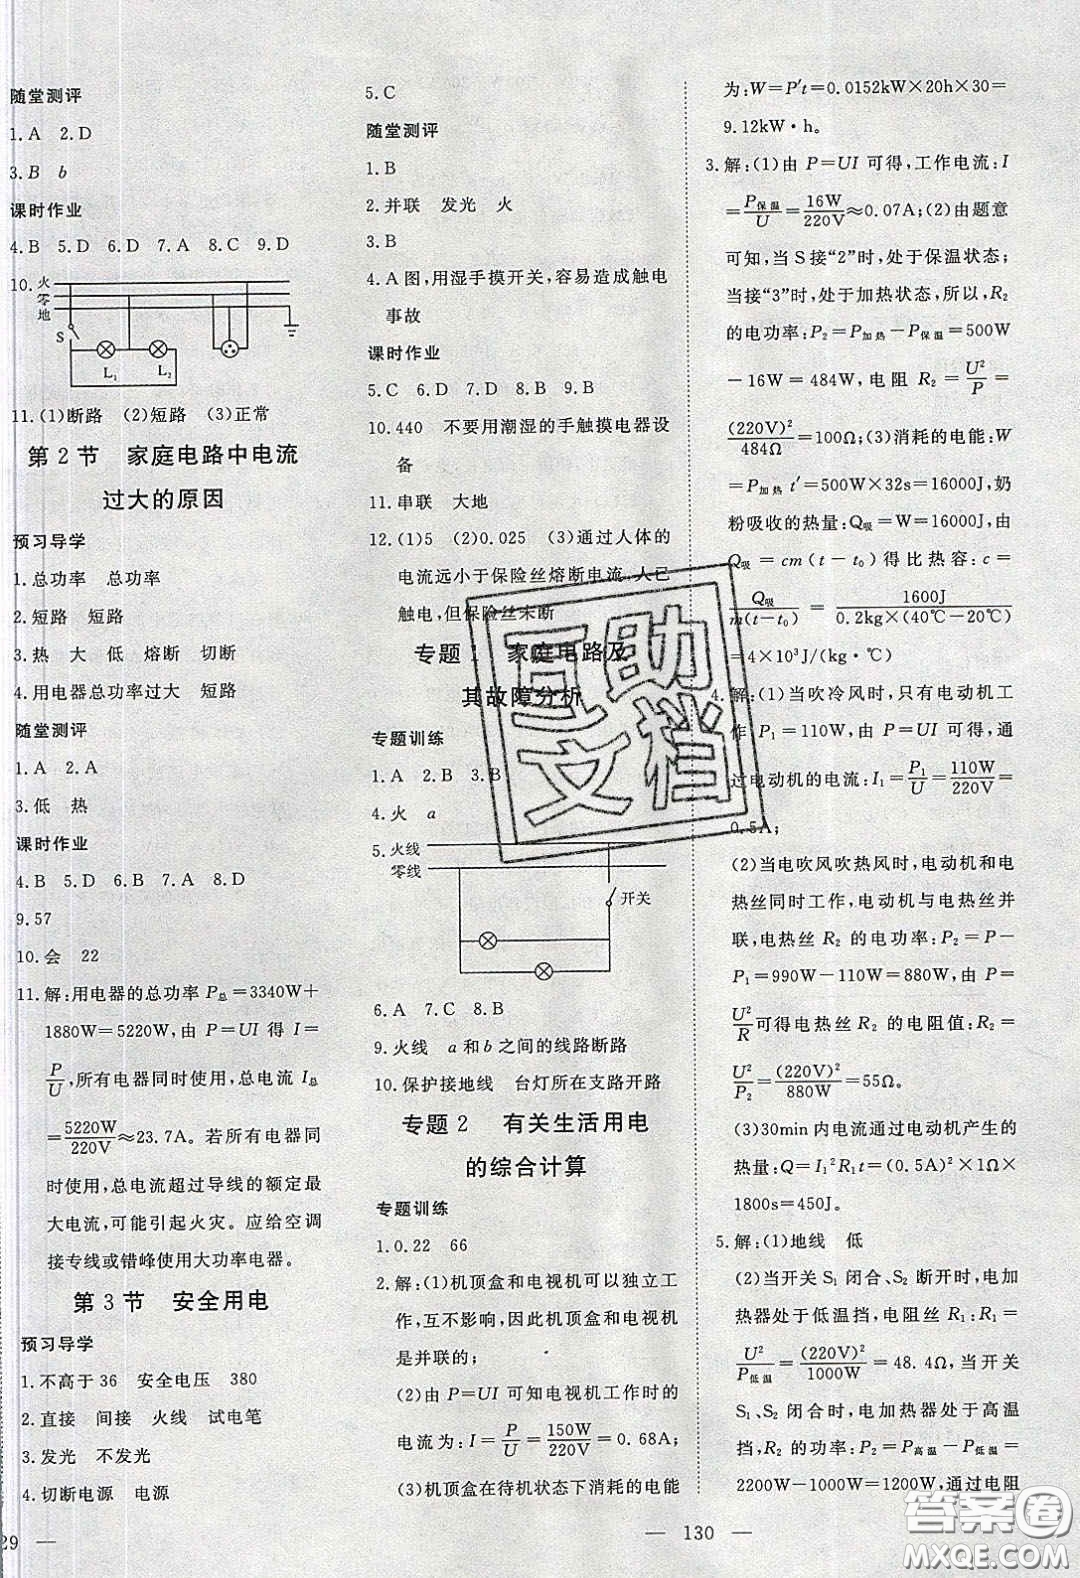 随堂测评
1.A 2.D
3.B b
课时作业
4.B 5.D 6.D 7.A 8.C 9.D
10.火
零
地
S
L₁ L₂
11.(1)断路 (2)短路 (3)正常
第2节 家庭电路中电流
过大的原因
预习导学
1.总功率 总功率
2.短路 短路
3.热 大 低 熔断 切断
4.用电器总功率过大 短路
随堂测评
1.A 2.A
3.低 热
课时作业
4.B 5.D 6.B 7.A 8.D
9.57
10.会 22
11.解:用电器的总功率 P总=3340W+
1880W=5220W, 由 P=UI 得 I=
P/U,所有电器同时使用,总电流 I总
=5220W/220V≈23.7A。若所有电器同
时使用,总电流超过导线的额定最
大电流,可能引起火灾。应给空调
接专线或错峰使用大功率电器。
第3节 安全用电
预习导学
1.不高于36 安全电压 380
2.直接 间接 火线 试电笔
3.发光 不发光
4.切断电源 电源
29 —
5.C
随堂测评
1.B
2.并联 发光 火
3.B
4.A图,用湿手摸开关,容易造成触电
事故
课时作业
5.C 6.D 7.D 8.B 9.B
10.440 不要用潮湿的手触摸电器设
备
11.串联 大地
12.(1)5 (2)0.025 (3)通过人体的
电流远小于保险丝熔断电流,人已
触电,但保险丝未断
专题1 家庭电路及
其故障分析
专题训练
1.A 2.B 3.B
4.火 a
5.火线
零线
开关
6.A 7.C 8.B
9.火线 a和b之间的线路断路
10.保护接地线 台灯所在支路开路
专题2 有关生活用电
的综合计算
专题训练
1.0.22 66
2.解:(1)机顶盒和电视机可以独立工
作,互不影响,因此机顶盒和电视机
是并联的;
(2)由 P=UI 可知电视机工作时的
电流为:I=P/U=150W/220V=0.68A;
(3)机顶盒在待机状态下消耗的电能
— 130 —
为:W=P′t=0.0152kW×20h×30=
9.12kW·h。
3.解:(1)由 P=UI 可得,工作电流:I
=P保温/U=16W/220V≈0.07A;(2)由题意
可知,当S接“2”时,处于保温状态;
当接“3”时,处于加热状态,所以,R₂
的电功率:P₂=P加热−P保温=500W
−16W=484W,电阻 R₂=U²/P=
(220V)²/484Ω=100Ω;(3)消耗的电能:W
=P加热 t′=500W×32s=16000J,奶
粉吸收的热量:Q吸=W=16000J,由
Q吸=cm(t−t₀)得比热容:c=
Q吸/m(t−t₀)=1600J/0.2kg×(40℃−20℃)
=4×10³J/(kg·℃)
4.解:(1)当吹冷风时,只有电动机工
作 P₁=110W,由 P=UI 可得,通
过电动机的电流:I₁=P₁/U=110W/220V=
0.5A;
(2)当电吹风吹热风时,电动机和电
热丝同时工作,电动机与电热丝并
联,电热丝 R₂ 的电功率:P₂=P−
P₁=990W−110W=880W,由 P=
U²/R可得电热丝 R₂ 的电阻值:R₂=
U²/P₂=(220V)²/880W=55Ω。
(3)30min内电流通过电动机产生的
热量:Q=I₁²R₁t=(0.5A)²×1Ω×
1800s=450J。
5.解:(1)地线 低
(2)当开关 S₁ 闭合、S₂ 断开时,电加
热器处于低温挡,电阻丝 R₁:R₁=
U²/P低温=(220V)²/1000W=48.4Ω,当开关
S₁、S₂ 闭合时,电加热器处于高温
挡,R₂ 的功率:P₂=P高温−P低温=
2200W−1000W=1200W,通过电阻
互助
文档
答案圈
MXQE.COM